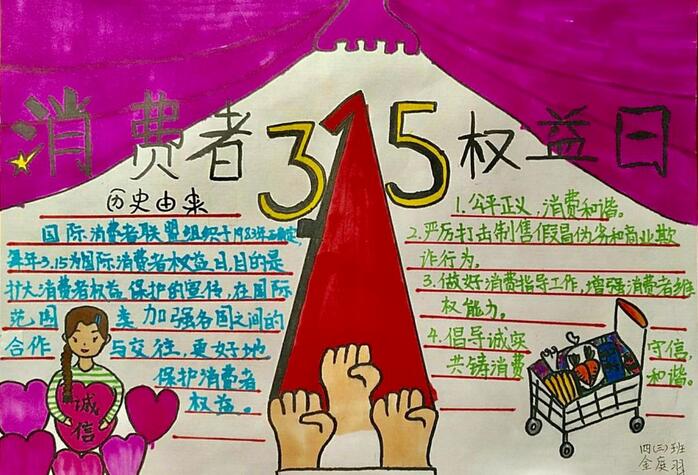 消费者315权益日
历史由来
国际消费者联盟组织于1983年正确定,
每年3.15为国际消费者权益日,目的是
扩大消费者权益保护的宣传,在国际
范围类加强各国之间的
合作与交往,更好地
保护消费者
权益。
诚信
1.公平正义,消费和谐。
2.严厉打击制售假冒伪劣和商业欺
诈行为。
3.做好消费指导工作,增强消费者维
权能力。
4.倡导诚实守信
共铸消费和谐。
四(三)班
金庭羽